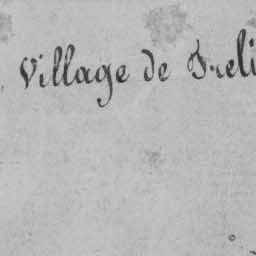 Village de Treli